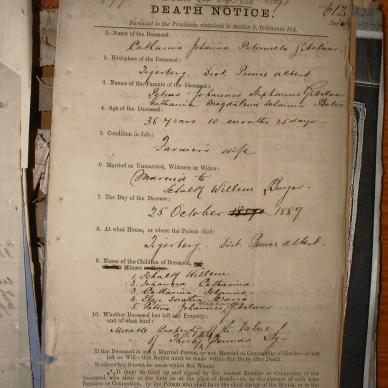 613
DEATH NOTICE.
Pursuant to the Provisions contained in Section 9, Ordinance 104.
1. Name of the Deceased:
Catharina Johanna Petronella
2. Birthplace of the Deceased:
Tygerberg. Dist. Prince Albert
3. Names of the Parents of the Deceased:
Petrus Johannes Stephanus
Catharina Magdalena Johanna Botes
4. Age of the Deceased:
36 years 10 months 25 days
5. Condition in Life:
Farmer's wife
6. Married or Unmarried, Widower or Widow:
Married to
Schalk Willem Burger
7. The Day of the Decease:
25 October 1889
8. At what House, or where the Person died:
Tygerberg. Dist. Prince Albert.
9. Names of the Children of Deceased,
1. Schalk Willem
2. Johanna Catharina
3. Catharina Johanna
4. Dorothea Maria
5. Petrus Johannes
10. Whether Deceased has left any Property;
and of what kind:
Movable Property of the Value
of Pounds Stg.
If the Deceased is not a Married Person, or not Married in Community of Goods—or has
left no Will—this Notice must be made within
If otherwise, it must be made within Six Weeks
It must be filled up and signed by the nearest Relative or Connection of the
Deceased who shall at the time be at the place of Death—or, in the absence of such near
Relative or Connection, by the Person who shall have the chief charge of the House, in